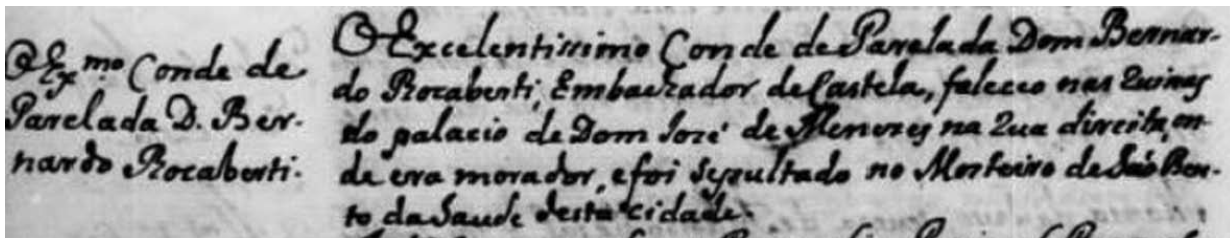 O Ex.mo Conde de
Parelada D. Ber-
nardo Rocaberti.
O Excelentissimo Conde de Parelada Dom Bernar-
do Rocaberti, Embaexador de Castela, faleceo nas Ruinas
do palacio de Dom Jozé de Menezes na Rua direita, on-
de era morador, e foi sepultado no Mosteiro de São Ben-
to da Saude desta cidade.